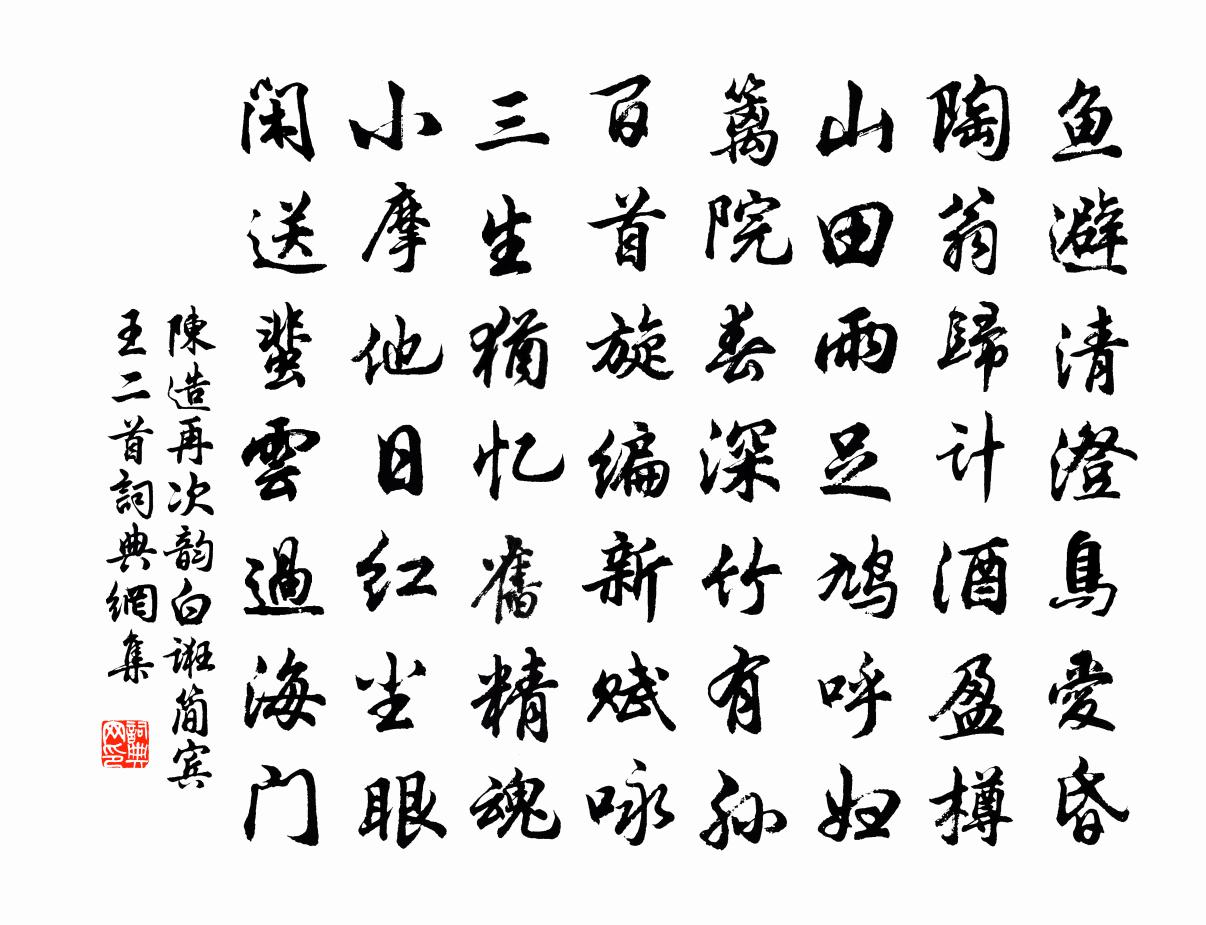 鱼避清澄鳥愛昏
陶翁歸计酒盈樽
山田雨足鸠呼妇
篱院春深竹有孙
百首旋编新赋咏
三生犹忆舊精魂
小摩他日红尘眼
闲送蜚雲過海门
陳造再次韵白诳简宾
王二首詞典網集
詞典
网印